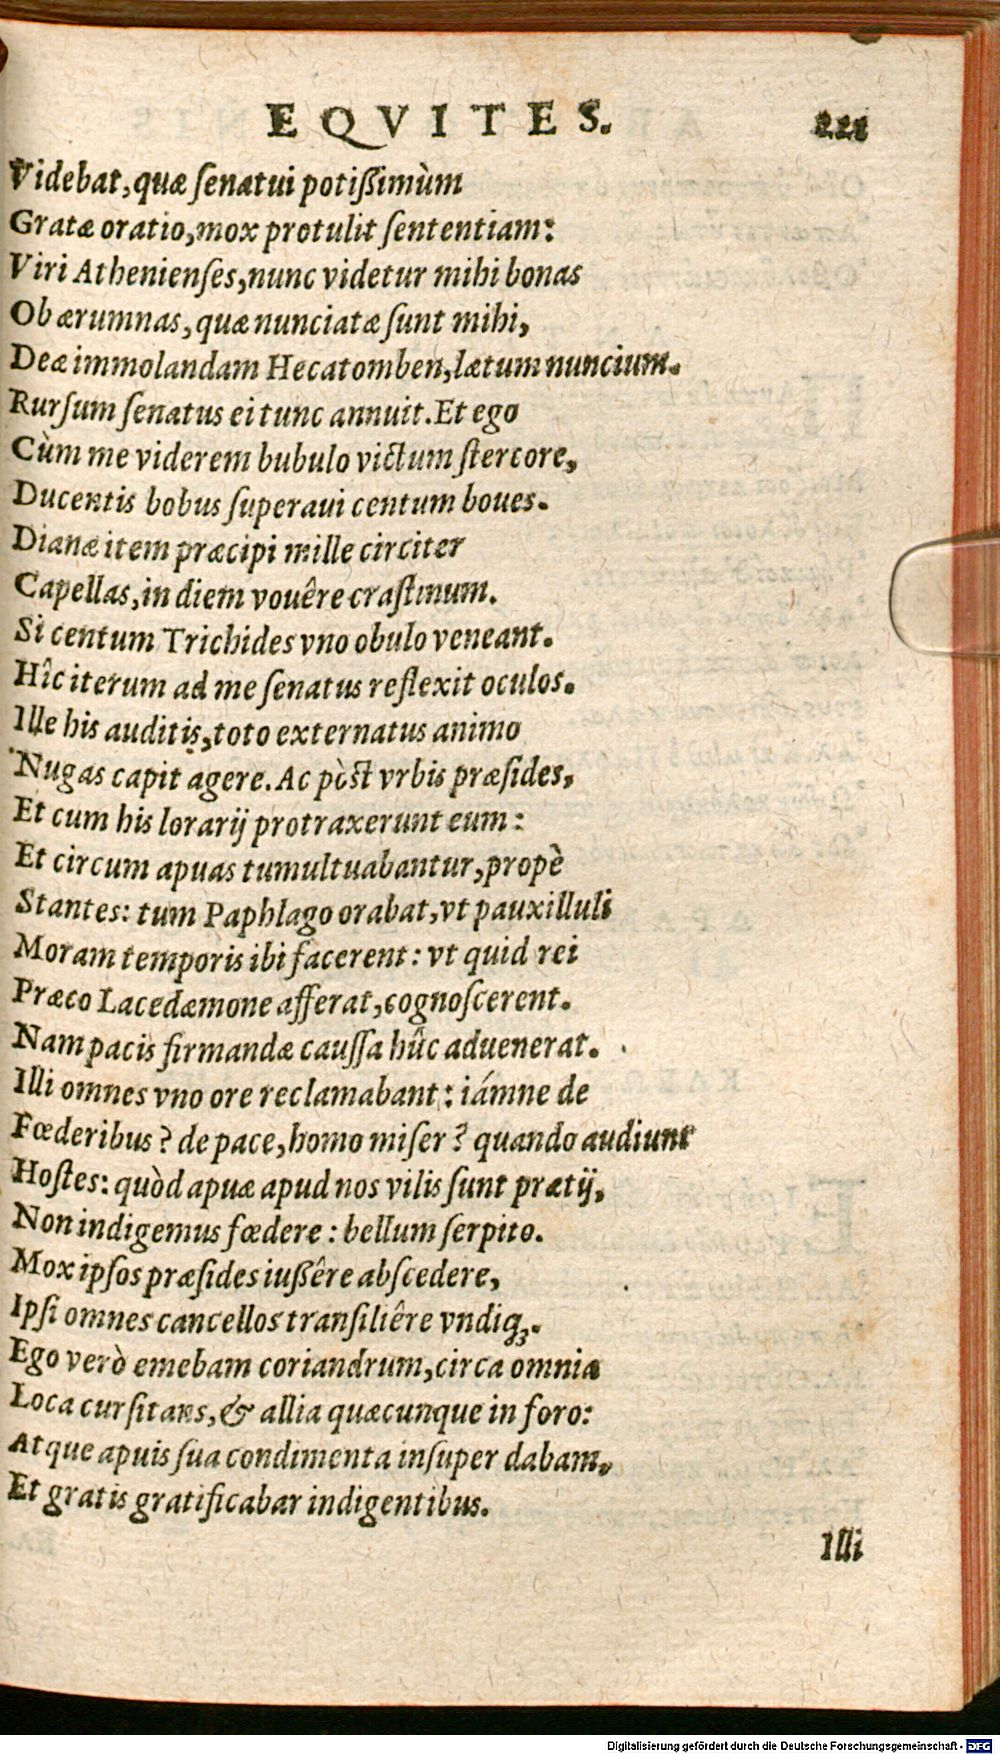 EQVITES. 221
Videbat, quæ ſenatui potißimùm
Gratæ oratio, mox protulit ſententiam:
Viri Athenienſes, nunc videtur mihi bonas
Ob ærumnas, quæ nunciatæ ſunt mihi,
Deæ immolandam Hecatomben, lætum nuncium.
Rurſum ſenatus ei tunc annuit. Et ego
Cùm me viderem bubulo victum ſtercore,
Ducentis bobus ſuperaui centum boues.
Dianæ item præcipi mille circiter
Capellas, in diem vouêre craſtinum.
Si centum Trichides vno obulo veneant.
Hîc iterum ad me ſenatus reflexit oculos.
Ille his auditis, toto externatus animo
Nugas capit agere. Ac pòſt vrbis præſides,
Et cum his lorarij protraxerunt eum:
Et circum apuas tumultuabantur, propè
Stantes: tum Paphlago orabat, vt pauxilluli
Moram temporis ibi facerent: vt quid rei
Præco Lacedæmone afferat, cognoſcerent.
Nam pacis firmandæ cauſſa hûc aduenerat.
Illi omnes vno ore reclamabant: iámne de
Fœderibus? de pace, homo miſer? quando audiunt
Hoſtes: quòd apuæ apud nos vilis ſunt prætij,
Non indigemus fœdere: bellum ſerpito.
Mox ipſos præſides iußêre abſcedere,
Ipſi omnes cancellos tranſiliêre vndiq́;.
Ego verò emebam coriandrum, circa omnia
Loca curſitans, & allia quæcunque in foro:
Atque apuis ſua condimenta inſuper dabam,
Et gratis gratificabar indigentibus.
Illi
Digitalisierung gefördert durch die Deutsche Forschungsgemeinschaft - DFG